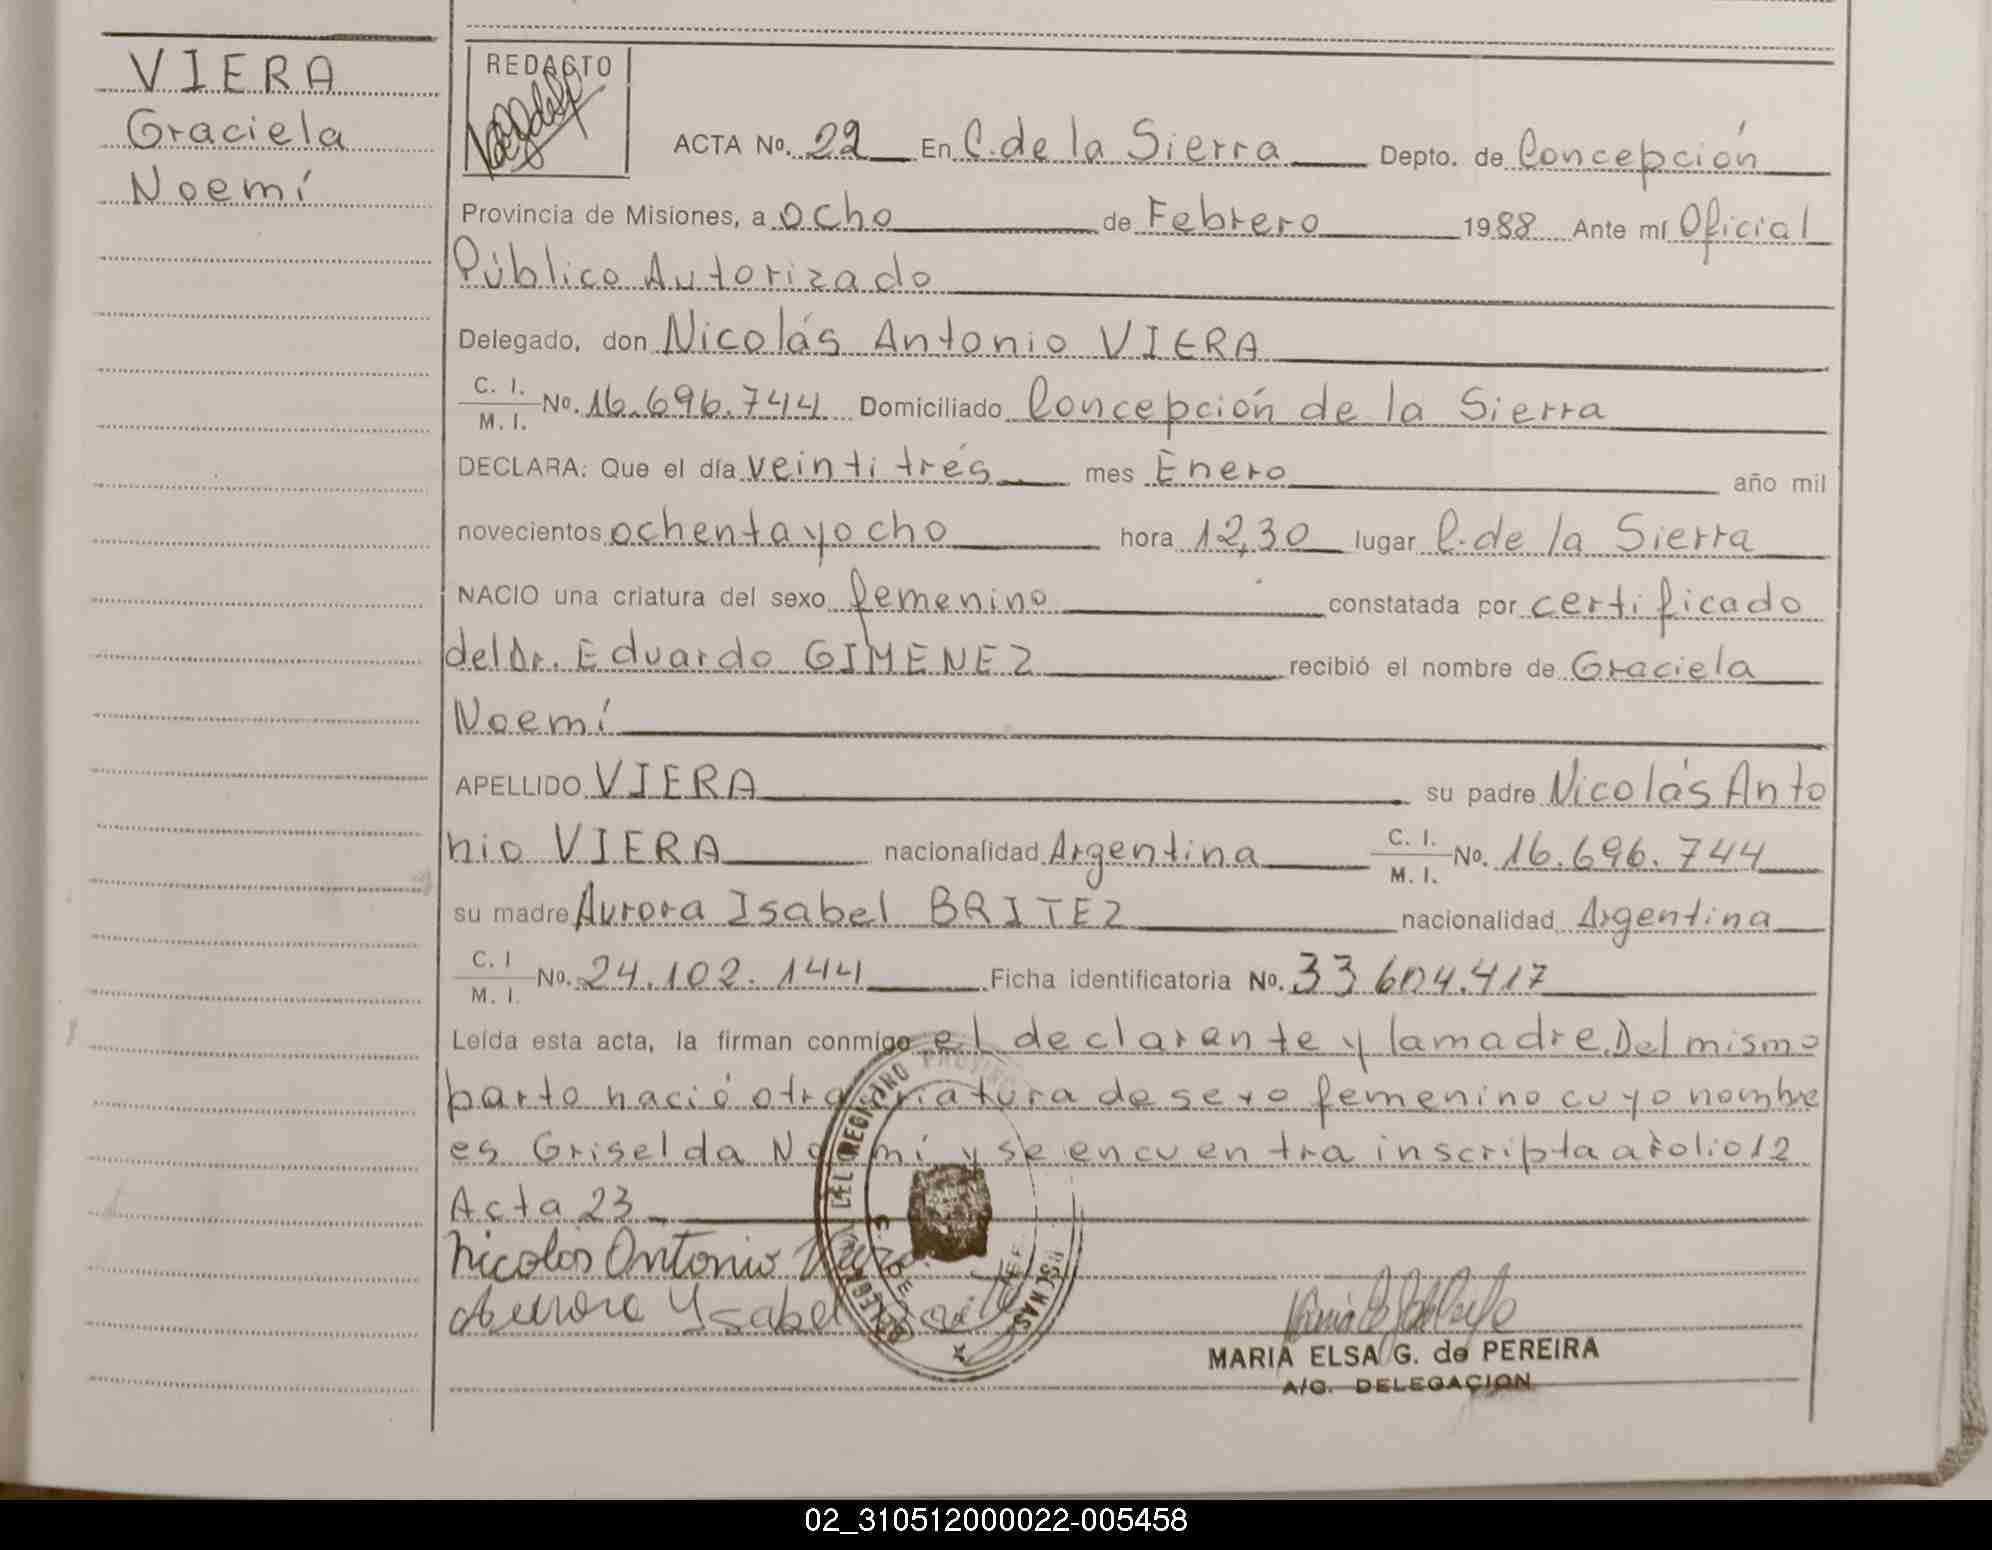 VIERA
Graciela
Noemí
REDACTO
ACTA No. 22 En C. de la Sierra Depto. de Concepción
Provincia de Misiones, a ocho de Febrero 1988 Ante mí Oficial
Público Autorizado
Delegado, don Nicolás Antonio VIERA
C. I. M. I. No. 16.696.744 Domiciliado Concepción de la Sierra
DECLARA: Que el día veintitrés mes Enero año mil
novecientos ochenta y ocho hora 12,30 lugar C. de la Sierra
NACIO una criatura del sexo femenino constatada por certificado
del Dr. Eduardo GIMENEZ recibió el nombre de Graciela
Noemí
APELLIDO VIERA su padre Nicolás Anto
nio VIERA nacionalidad Argentina C. I. M. I. No. 16.696.744
su madre Aurora Isabel BRITEZ nacionalidad Argentina
C. I M. I. No. 24.102.144 Ficha identificatoria No. 33 604.417
Leída esta acta, la firman conmigo el declarante y la madre. Del mismo
parto nació otra criatura de sexo femenino cuyo nombre
es Griselda Noemí y se encuentra inscripta a folio 12
Acta 23
Nicolás Antonio Viera
Aurora Ysabel Britez
MARIA ELSA G. de PEREIRA
A/C. DELEGACION
02_310512000022-005458